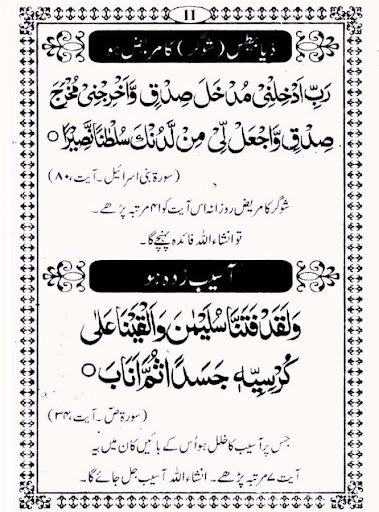 11
ذیابیطس (شوگر) کا مریض ہو
رَبِّ اَدْخِلْنِیْ مُدْخَلَ صِدْقٍ وَّاَخْرِجْنِیْ مُخْرَجَ
صِدْقٍ وَّاجْعَلْ لِّیْ مِنْ لَّدُنْكَ سُلْطٰنًا نَّصِیْرًا ○
(سورۃ بنی اسرائیل۔ آیت، ۸۰)
شوگر کا مریض روزانہ اس آیت کو ۴۱ مرتبہ پڑھے۔
تو انشاء اللہ فائدہ پہنچے گا۔
آسیب زدہ ہو
وَلَقَدْ فَتَنَّا سُلَیْمٰنَ وَاَلْقَیْنَا عَلٰی
كُرْسِیِّهٖ جَسَدًا ثُمَّ اَنَابَ ○
(سورۃ صٓ۔ آیت، ۳۴)
جس پر آسیب کا خلل ہو اُس کے بائیں کان میں یہ
آیت ۷ مرتبہ پڑھے۔ انشاء اللہ آسیب جل جائے گا۔